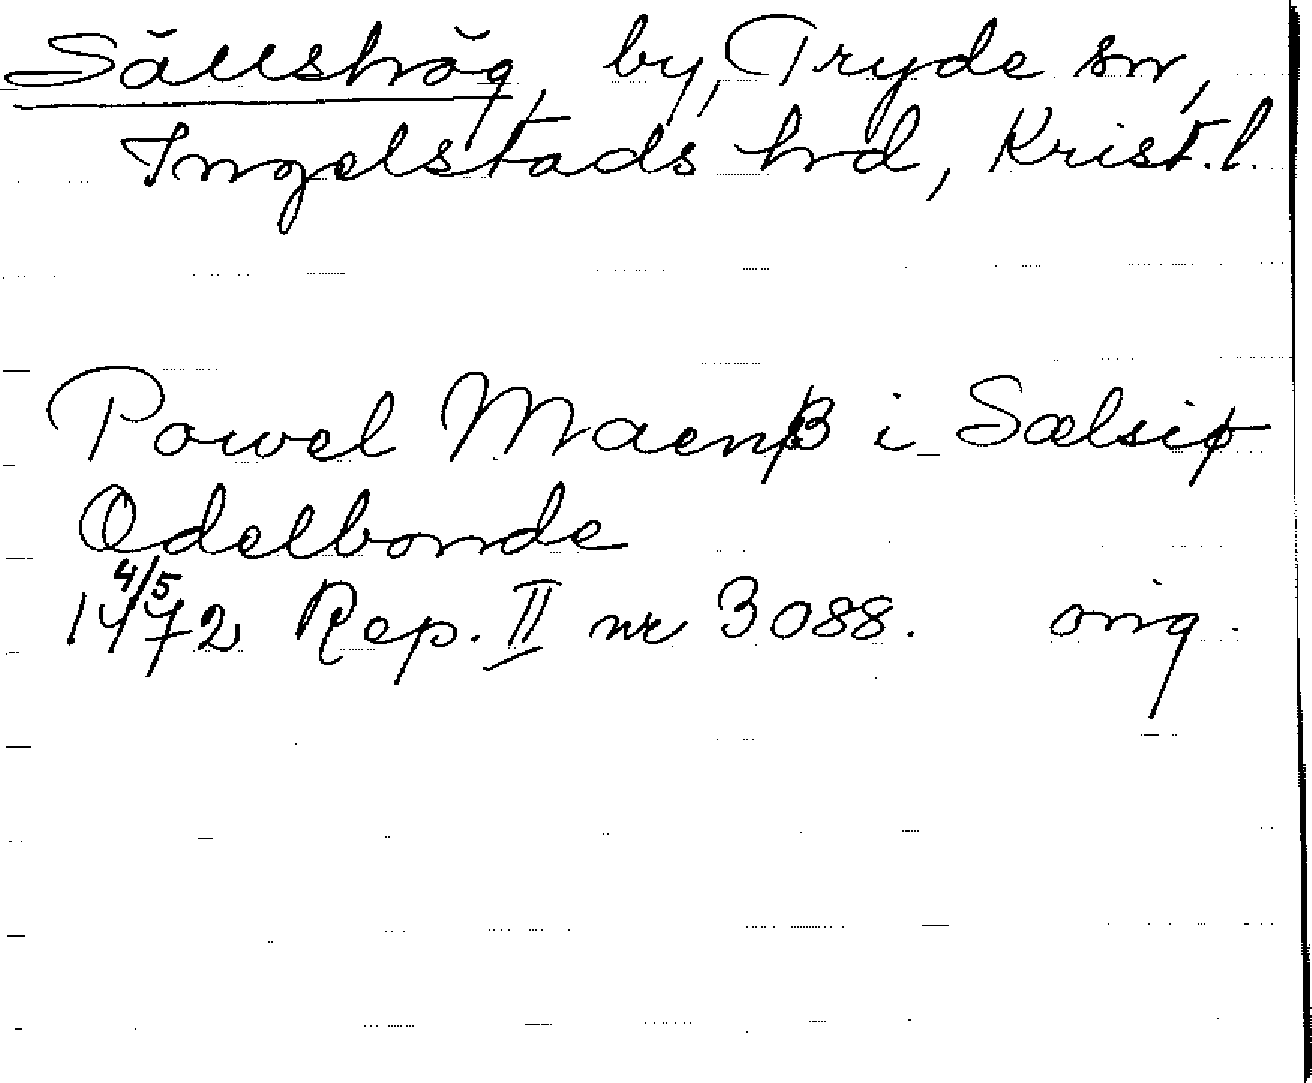 Sällshög, by, Tryde sn,
Ingelstads hd, Krist. l.
Powel Maenβ i Sælsiø
Odelbonde
4/5
1472 Rep. II nr 3088. orig.